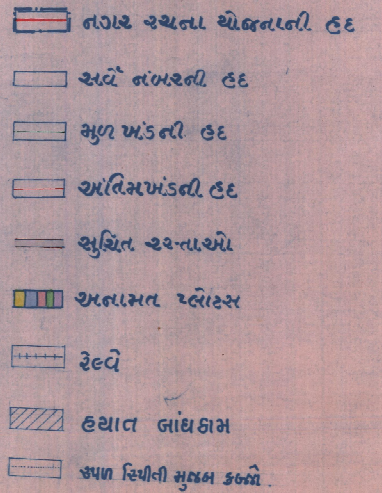 નગર રચના યોજનાની હદ
સર્વે નંબરની હદ
મુળ ખંડની હદ
અંતિમખંડની હદ
સુચિત રસ્તાઓ
અનામત પ્લોટસ
રેલ્વે
હયાત બાંધકામ
સ્થળ સ્થિતી મુજબ કબ્જો.